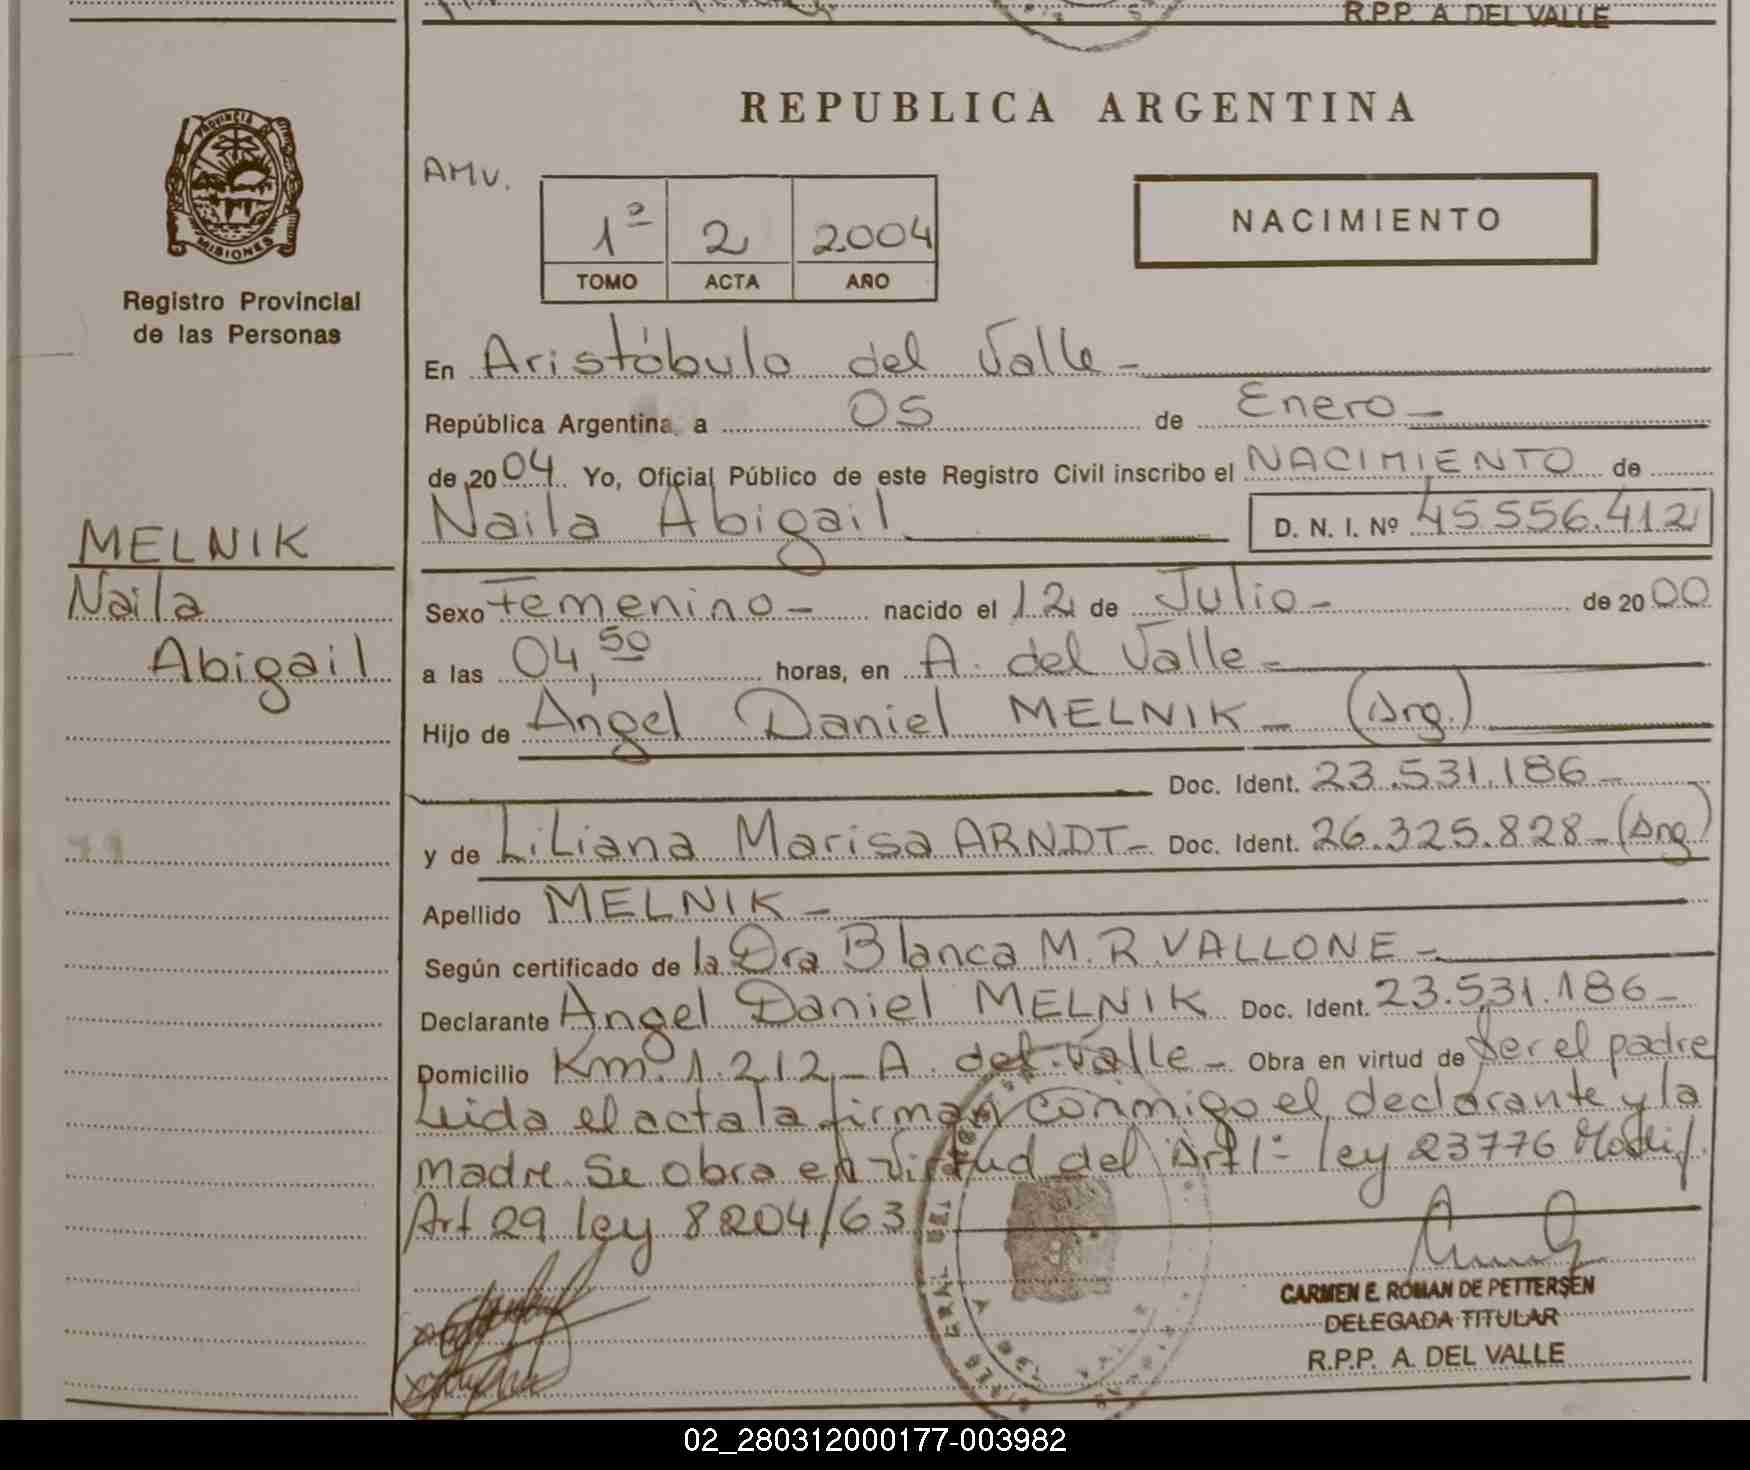 R.P.P. A DEL VALLE
PROVINCIA DE
MISIONES
Registro Provincial
de las Personas
REPUBLICA ARGENTINA
AMV.
1º 2 2004
TOMO ACTA AÑO
NACIMIENTO
En Aristóbulo del Valle -
República Argentina a 05 de Enero -
de 2004 Yo, Oficial Público de este Registro Civil inscribo el NACIMIENTO de
Naila Abigail D. N. I. Nº 45 556.412
MELNIK
Naila
Abigail
Sexo Femenino - nacido el 12 de Julio - de 2000
a las 04,50 horas, en A. del Valle -
Hijo de Angel Daniel MELNIK - (Arg.)
Doc. Ident. 23.531.186 -
y de Liliana Marisa ARNDT - Doc. Ident. 26.325.828 - (Arg)
Apellido MELNIK -
Según certificado de la Dra Blanca M. R. VALLONE -
Declarante Angel Daniel MELNIK Doc. Ident. 23.531.186 -
Domicilio Km. 1.212 - A. del Valle - Obra en virtud de ser el padre
Leida el acta la firman conmigo el declarante y la
madre. Se obra en virtud del Art 1º ley 23776 Modif.
Art 29 ley 8204/63
CARMEN E. ROMAN DE PETTERSEN
DELEGADA TITULAR
R.P.P. A. DEL VALLE
02_280312000177-003982